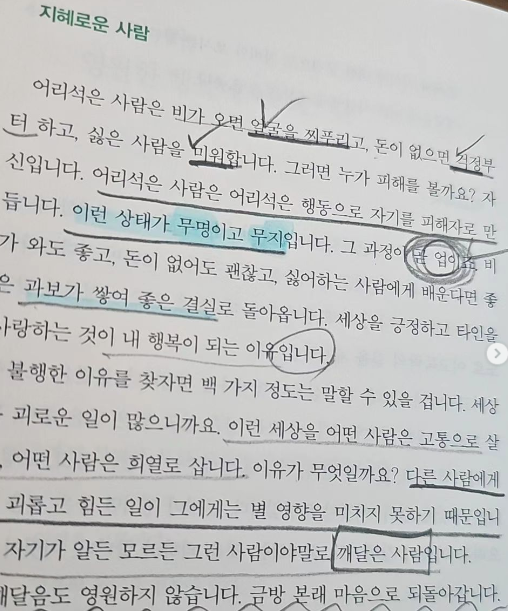 지혜로운 사람
어리석은 사람은 비가 오면 얼굴을 찌푸리고, 돈이 없으면 걱정부
터 하고, 싫은 사람을 미워합니다. 그러면 누가 피해를 볼까요? 자
신입니다. 어리석은 사람은 어리석은 행동으로 자기를 피해자로 만
듭니다. 이런 상태가 무명이고 무지입니다. 그 과정이 곧 업이죠 비
가 와도 좋고, 돈이 없어도 괜찮고, 싫어하는 사람에게 배운다면 좋
은 과보가 쌓여 좋은 결실로 돌아옵니다. 세상을 긍정하고 타인을
사랑하는 것이 내 행복이 되는 이유입니다.
불행한 이유를 찾자면 백 가지 정도는 말할 수 있을 겁니다. 세상
괴로운 일이 많으니까요. 이런 세상을 어떤 사람은 고통으로 살
어떤 사람은 희열로 삽니다. 이유가 무엇일까요? 다른 사람에게
괴롭고 힘든 일이 그에게는 별 영향을 미치지 못하기 때문입니
자기가 알든 모르든 그런 사람이야말로 깨달은 사람입니다.
깨달음도 영원하지 않습니다. 금방 본래 마음으로 되돌아갑니다.